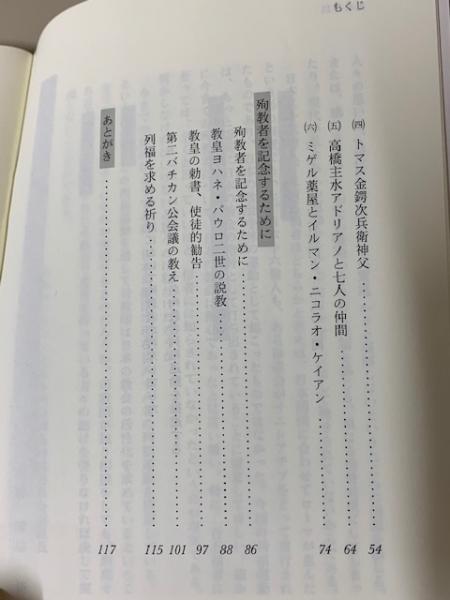 もくじ
㈣ トマス金鍔次兵衛神父 54
㈤ 高橋主水アドリアノと七人の仲間 64
㈥ ミゲル薬屋とイルマン・ニコラオ・ケイアン 74
殉教者を記念するために
殉教者を記念するために 86
教皇ヨハネ・パウロ二世の説教 88
教皇の勅書、使徒的勧告 97
第二バチカン公会議の教え 101
列福を求める祈り 115
あとがき 117